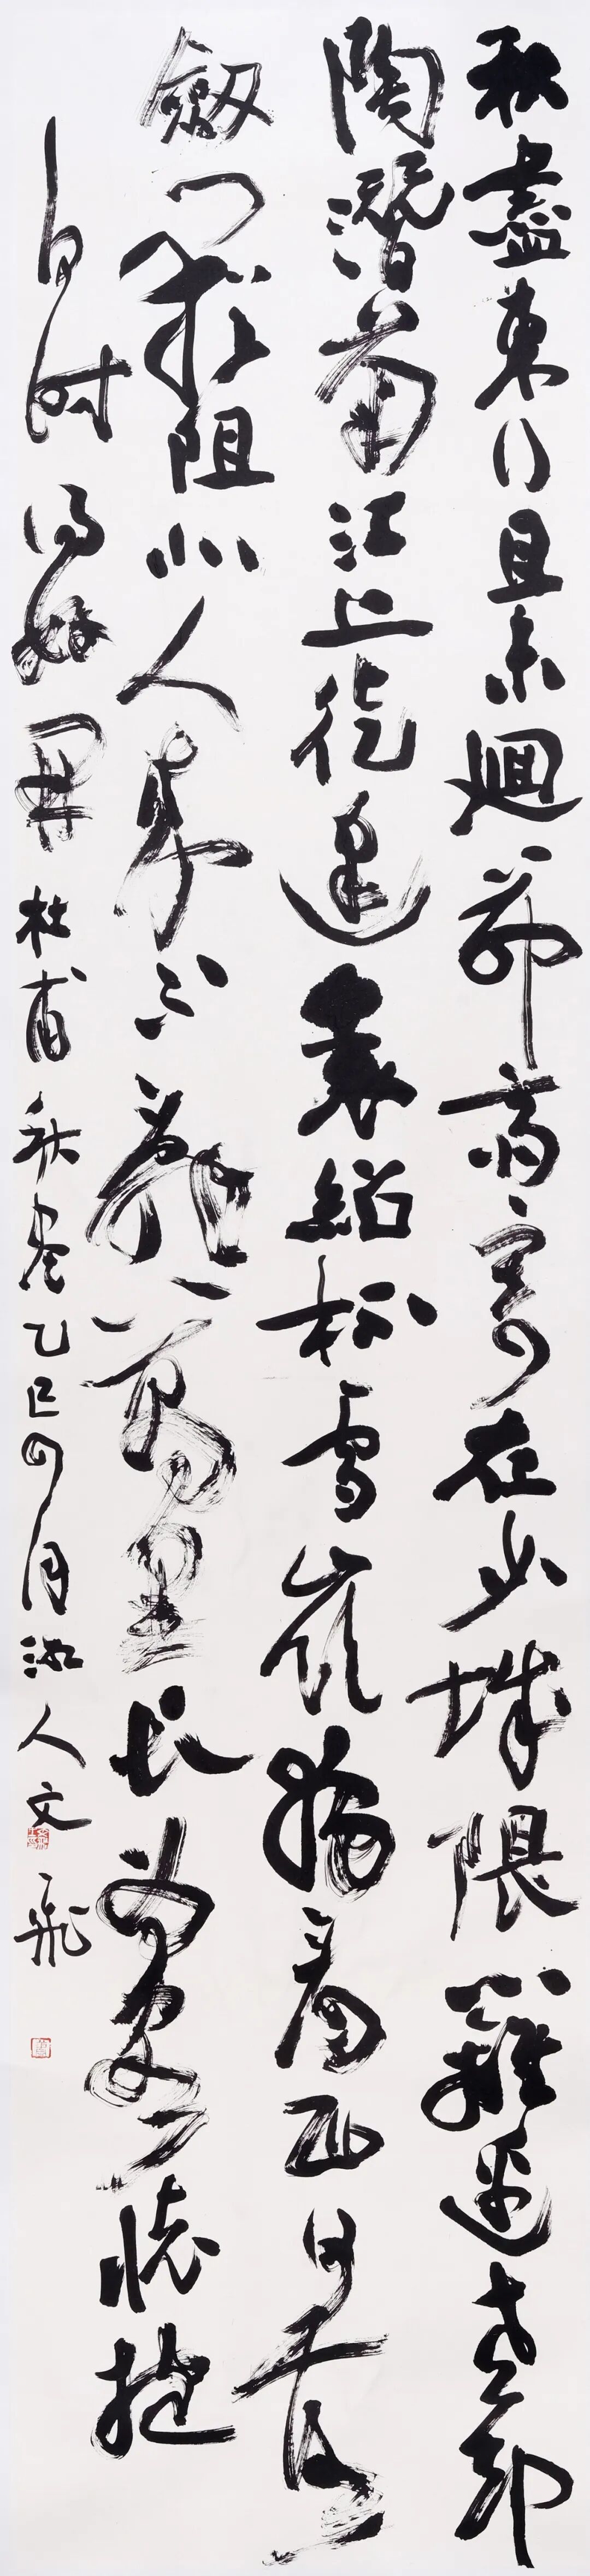 秋盡東行且未迴茆齋寄在少城隈籬邊老却
陶潛菊江上徒逢袁紹杯雪嶺獨看西日落
劍門猶阻北人來不辭萬里長為客懷抱
何時得好開杜甫秋盡乙巳四月人文飛